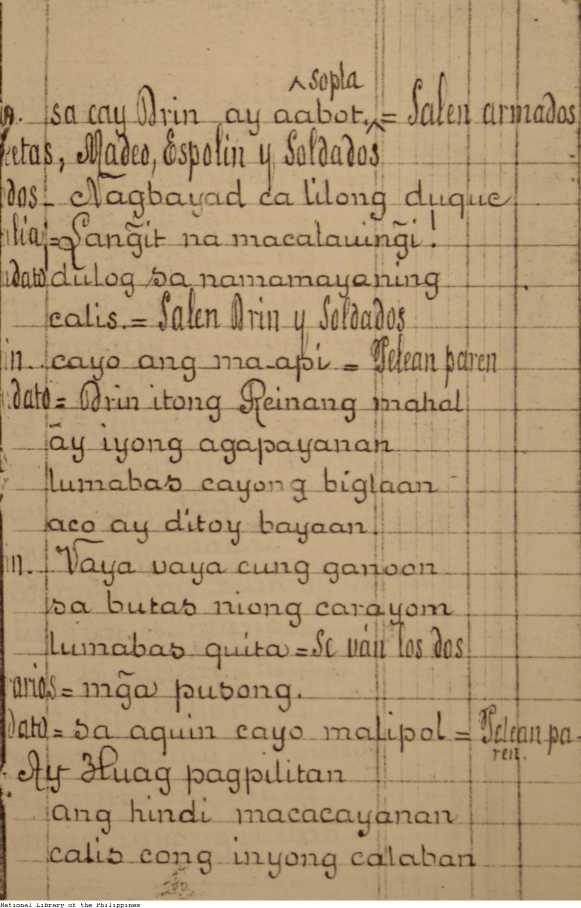 sopla
sa cay Brin ay aabot. = Salen armados
etas, Madeo, Espolin y Soldados
dos - Nagbayad ca lilong duque
lia = Sang̃it na macalauing̃i!
dato dulog sa namamayaning
calis. = Salen Brin y Soldados
in. cayo ang ma-api = Pelean paren
dato = Brin itong Reinang mahal
ay iyong agapayanan
lumabas cayong biglaan
aco ay ditoy bayaan.
in. Vaya vaya cung ganoon
sa butas niong carayom
lumabas quita = Se ván los dos
arios = mg̃a pusong.
dato = sa aquin cayo malipol = Pelean pa-
ren.
Ay Huag pagpilitan
ang hindi macacayanan
calis cong inyong calaban
National Library of the Philippines